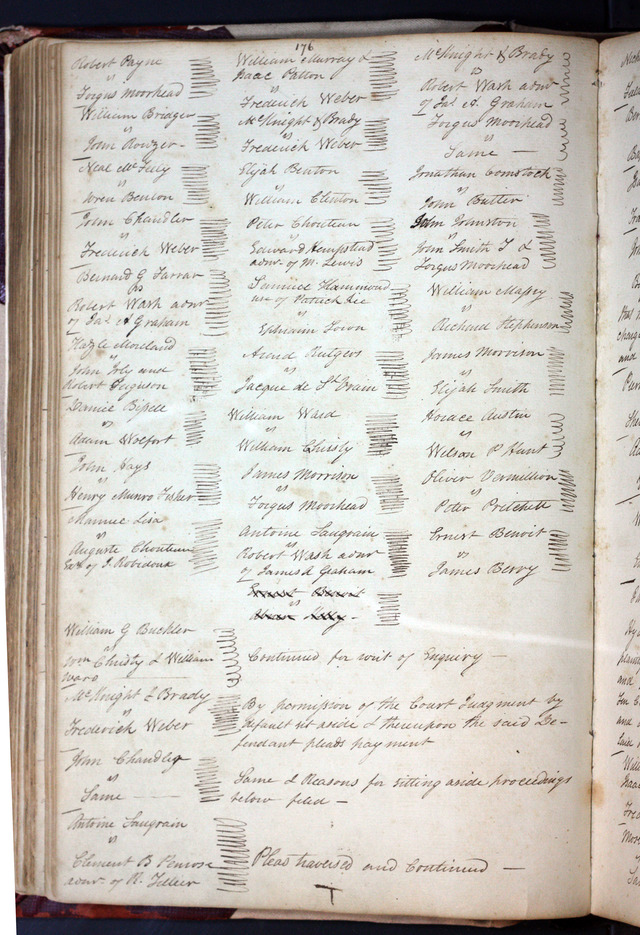 176
Robert Payne
vs
Fergus Moorhead
William Bridger
vs
John Rouzer
Neal McFuly
vs
Wren Benton
John Chandler
vs
Frederick Weber
Bernard G Farrar
vs
Robert Wash admr
of Jas A Graham
Hazle Moreland
vs
John Joly and
Robert Ferguson
Daniel Bissell
vs
Adam Wolfort
John Hays
vs
Henry Munro Fisher
Manuel Lisa
vs
Auguste Chouteau
Exr of J. Robedoux
William Murray &
Isaac Patton
vs
Frederick Weber
McKnight & Brady
vs
Frederick Weber
Elijah Benton
vs
William Clinton
Peter Chouteau
vs
Edward Hempstead
admr. of M. Lewis
Hammond
use of Patrick Lee
vs
Ephraim Town
Arend Rutgers
vs
Jacque de St Vrain
William Ward
vs
William Christy
James Morrison
vs
Fergus Moorhead
Antoine Saugrain
vs
Robert Wash admr
of James A Graham
Ernest Benoit
vs
McKnight & Brady
vs
Robert Wash admr
of Jas A. Graham
Fergus Moorhead
vs
Same —
Jonathan Comstock
vs
John Butler
John Johnston
vs
John Smith T &
Fergus Moorhead
William Massey
vs
Richard Stephenson
James Morrison
vs
Elijah Smith
Horace Austin
vs
Wilson P Hunt
Oliver Vermillion
vs
Peter Pritchett
Ernest Benoit
vs
James Berry
William G Buckler
vs
Wm Christy & William
Ward
Continued for writ of Enquiry —
McKnight & Brady
vs
Frederick Weber
By permission of the Court Judgment by
default set aside & thereupon the said De-
fendant pleads payment
John Chandler
vs
Same —
Same & Reasons for setting aside proceedings
below filed —
Antoine Saugrain
vs
Clement B Penrose
admr. of R. Tillier
Pleas traversed and Continued —